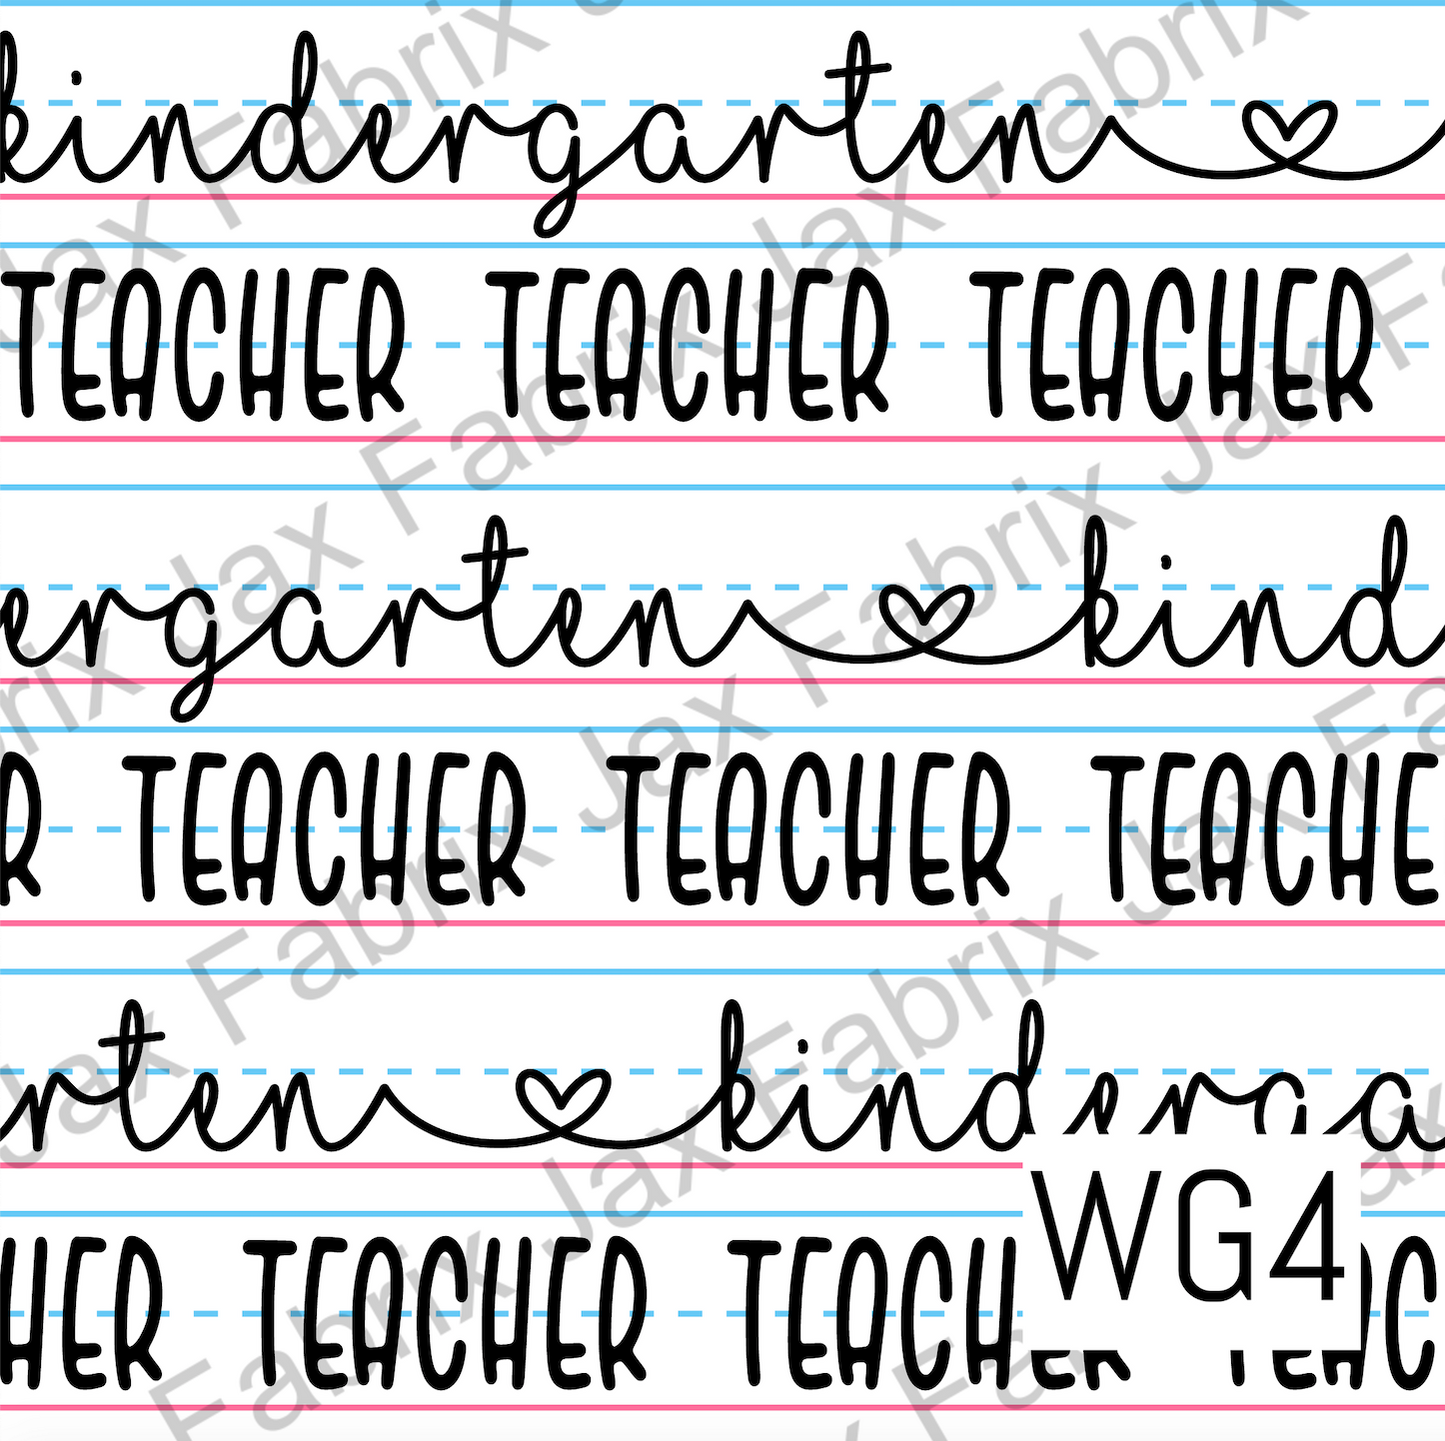 kindergarten
TEACHER TEACHER TEACHER
ergarten kind
R TEACHER TEACHER TEACHE
rten kinderga
HER TEACHER TEACHER TEAC
WG4
Jax Fabrix Jax Fabrix Jax Fabrix